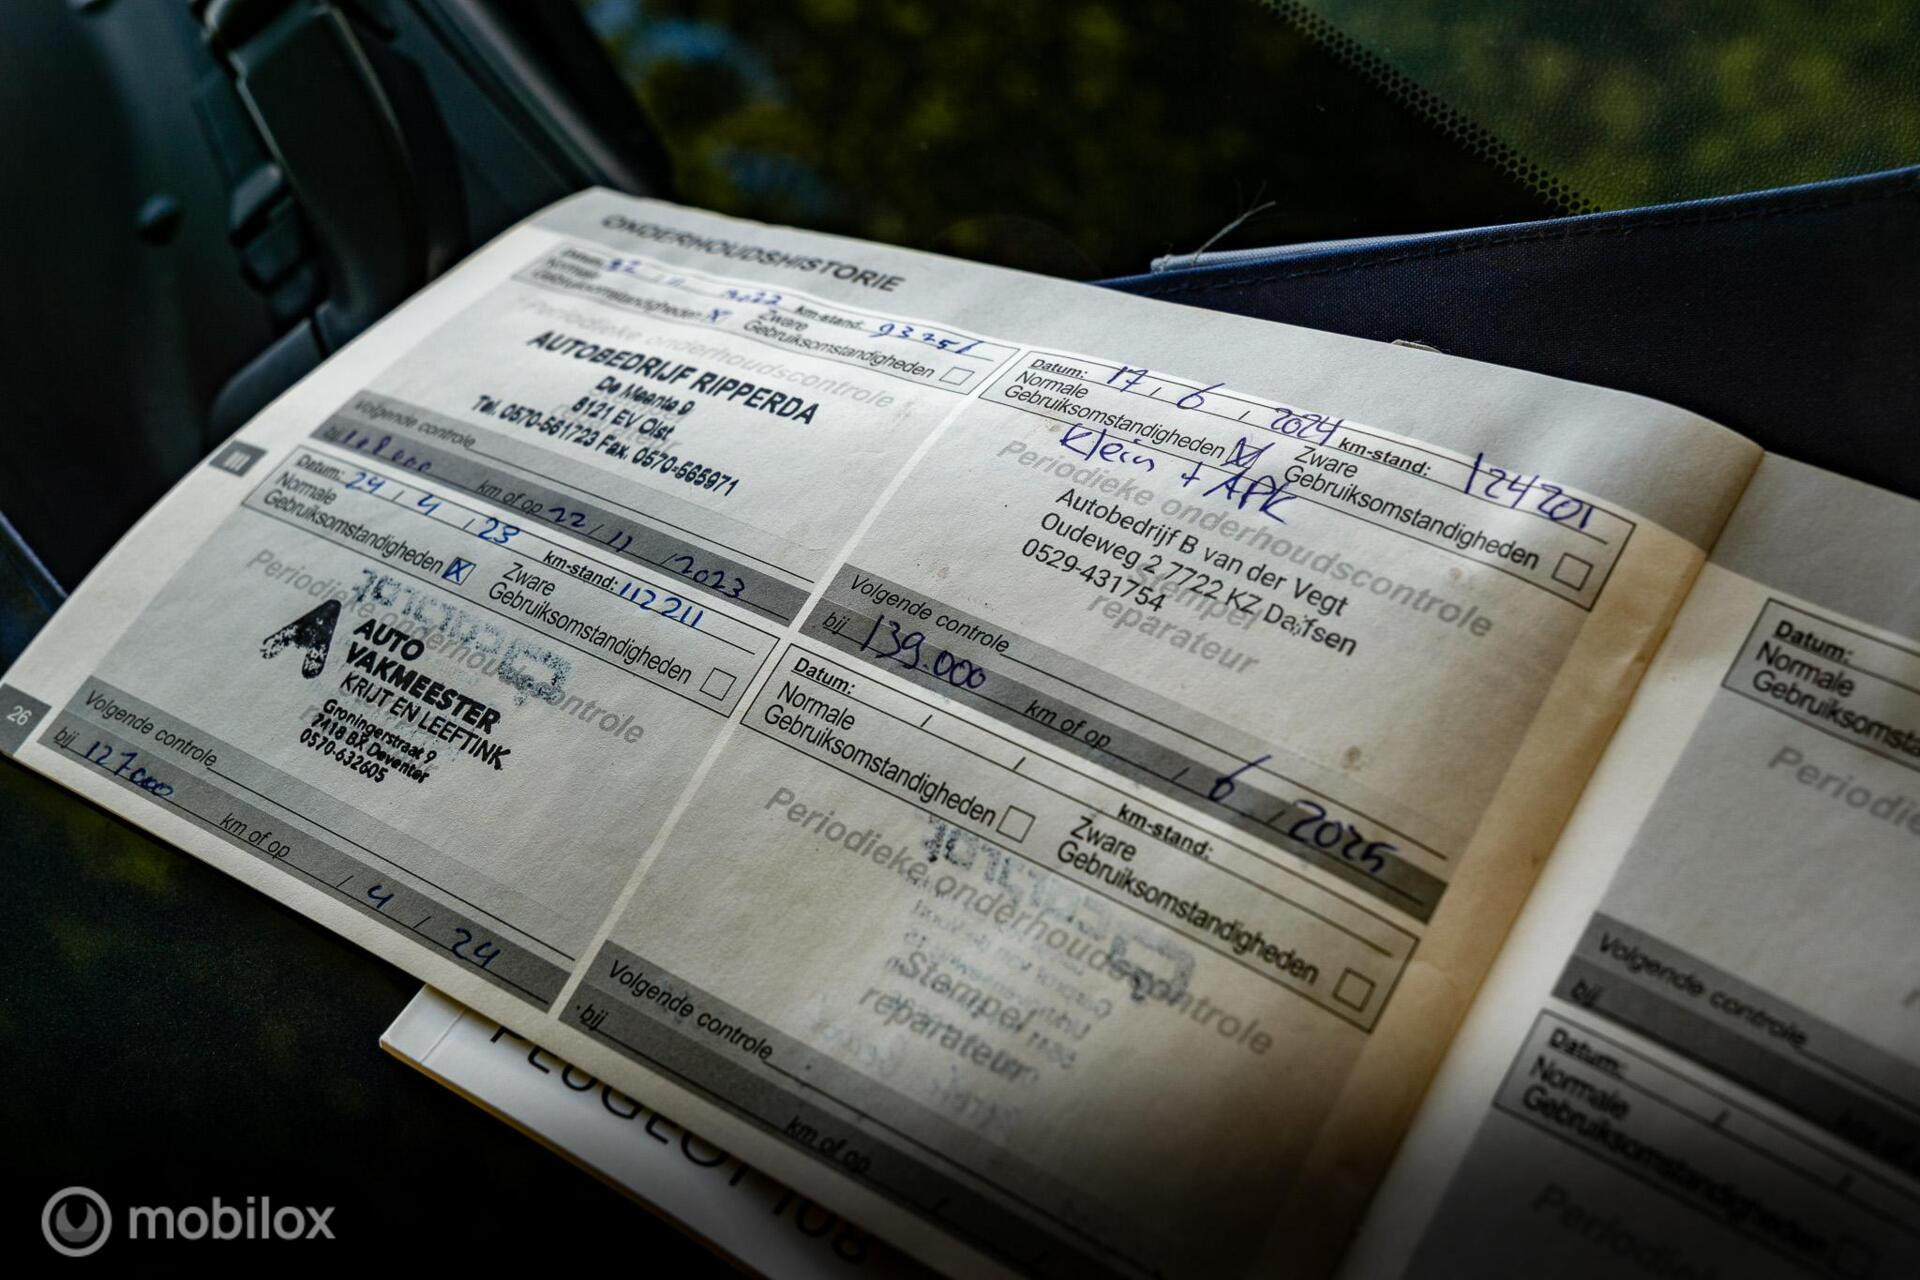 ONDERHOUDSHISTORIE
Datum: 22 11 2022 km-stand: 93251
Normale Gebruiksomstandigheden X Zware Gebruiksomstandigheden
Periodieke onderhoudscontrole
AUTOBEDRIJF RIPPERDA
De Meente 9
8121 EV Olst
Tel. 0570-561723 Fax. 0570-565971
Volgende controle
bij 108000 km of op 22 / 11 / 2023
m
Datum: 24 / 4 / 23 km-stand: 112211
Normale Gebruiksomstandigheden X Zware Gebruiksomstandigheden
Periodieke onderhoudscontrole
AUTO
VAKMEESTER
KRIJT EN LEEFTINK
Groningerstraat 9
7418 BX Deventer
0570-632605
Volgende controle
bij 127000 km of op / 4 / 24
26
Datum: 17 / 6 / 2024 km-stand: 124201
Normale Gebruiksomstandigheden X Zware Gebruiksomstandigheden
Klein + APK
Periodieke onderhoudscontrole
Autobedrijf B van der Vegt
Oudeweg 2 7722 KZ Dalfsen
0529-431754
Stempel
reparateur
Volgende controle
bij 139.000 km of op / 6 / 2025
Datum: / / km-stand:
Normale Gebruiksomstandigheden Zware Gebruiksomstandigheden
Periodieke onderhoudscontrole
Stempel
reparateur
Volgende controle
bij km of op /
Datum:
Normale
Gebruiksomsta
Periodie
Volgende controle
bij
Datum: /
Normale
Gebruiksomstandigheden
Periodie
PEUGEOT 108
mobilox